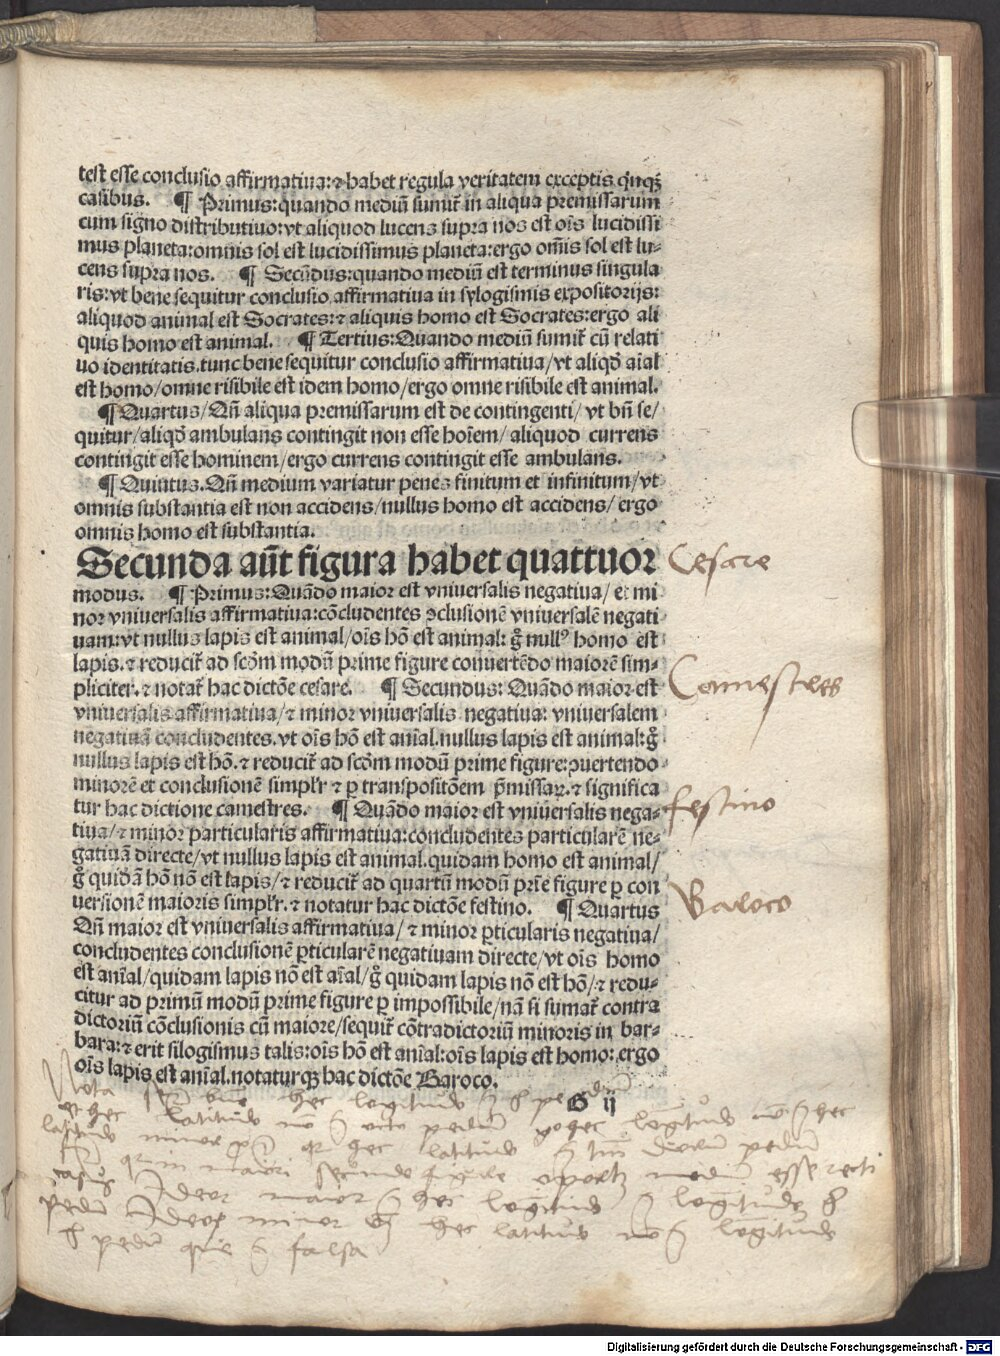 test esse conclusio affirmatiua:⁊ habet regula veritatem exceptis q̇nqꝫ
casibus. ¶ Primus:quando mediū sumit̄ in aliqua premissarum
cum signo distributiuo:vt aliquod lucens supra nos est oīs lucidissi
mus planeta:omnis sol est lucidissimus planeta:ergo om̄is sol est lu⸗
cens supra nos. ¶ Secūdus:quando mediū est terminus singula
ris:vt bene sequitur conclusio affirmatiua in sylogismis expositorijs:
aliquod animal est Socrates:⁊ aliquis homo est Socrates:ergo ali
quis homo est animal. ¶ Tertius:Quando mediū sumit̄ cū relati
uo identitatis.tunc bene sequitur conclusio affirmatiua/vt aliqđ aīal
est homo/omne risibile est idem homo/ergo omne risibile est animal.
¶ Quartus/Qn̄ aliqua premissarum est de contingenti/ vt bn̄ se/
quitur/aliqđ ambulans contingit non esse hoīem/aliquod currens
contingit esse hominem/ergo currens contingit esse ambulans.
¶ Quintus.Qn̄ medium variatur penes finitum et infinitum/vt
omnis substantia est non accidens/nullus homo est accidens/ ergo
omnis homo est substantia.
Secunda aūt figura habet quattuor Cesare
modus. ¶ Primus:Quādo maior est vniuersalis negatiua/ et mi
nor vniuersalis affirmatiua:cōcludentes ꝯclusionē vniuersalē negati
uam:vt nullus lapis est animal/oīs hō est animal: g̊ nullꝰ homo est
lapis.⁊ reducit̄ ad scōm modū prime figure conuertēdo maiorē sim⸗
pliciter.⁊ notat̄ hac dictōe cesare. ¶ Secundus: Quādo maior est
Camestres
vniuersalis affirmatiua/⁊ minor vniuersalis negatiua: vniuersalem
negatiuā concludentes.vt oīs hō est anīal.nullus lapis est animal:g̊
nullus lapis est hō.⁊ reducit̄ ad scōm modū prime figure:ꝯuertendo
minorē et conclusionē simpl'r ⁊ ꝑ transpositōem p̄missaꝝ.⁊ significa
tur hac dictione camestres. ¶ Quādo maior est vniūersalis nega⸗ festino
tiua/⁊ minor particularis affirmatiua:concludentes particularē ne⸗
gatiuā directe/vt nullus lapis est animal.quidam homo est animal/
g̊ quidā hō nō est lapis/⁊ reducit̄ ad quartū modū prīe figure ꝑ con
uersionē maioris simpl'r.⁊ notatur hac dictōe festino. ¶ Quartus Baroco
Qn̄ maior est vniuersalis affirmatiua/ ⁊ minor ꝑticularis negatiua/
concludentes conclusionē ꝑticularē negatiuam directe/vt oīs homo
est anīal/quidam lapis nō est aīal/g̊ quidam lapis nō est hō/⁊ redu⸗
citur ad primū modū prime figure ꝑ impossibile/nā si sumat̄ contra
dictoriū cōclusionis cū maiore/sequit̄ cōtradictoriū minoris in bar⸗
bara:⁊ erit silogismus talis:oīs hō est anīal:oīs lapis est homo:ergo
oīs lapis est anīal.notaturqꝫ hac dictōe Baroco.
G ij
Nota hec
hec latitudo pedum hec
latitudo minor hec latitudo pedum
in maiori secunde figure medium esse recti
casus maior hec
pedum minor hec latitudo
pedum que falsa